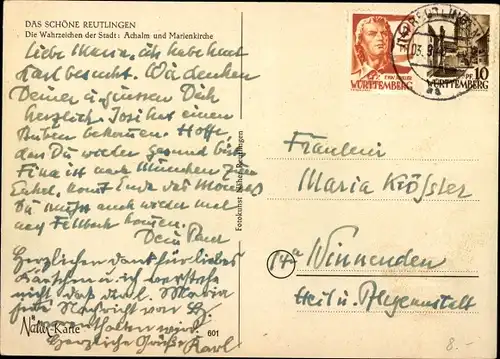 DAS SCHÖNE REUTLINGEN
Die Wahrzeichen der Stadt: Achalm und Marienkirche
Liebe Maria, ich habe heut
Karl besucht. Wir denken
Deiner u. grüssen Dich
herzlich. Josi hat einen
Buben bekommen. Hoffe,
dass Du wieder gesund bist.
Fina ist nach München zum
Enkel, kommt Ende des Monats
Du musst auch wieder mal
nach Fellbach kommen.
Dein
Herzlichen Dank für liebes
Kärtchen u. ich verstehe
nicht dass Maria
Nachricht von
wird
Herzliche Grüße Karl
Natur-Karte
601
Fotokunst Reutlingen
REUTLINGEN
WÜRTTEMBERG
10
WÜRTTEMBERG
Fräulein
Maria Kößler
14a
Winnenden
Heil u. Pflegeanstalt
8.-